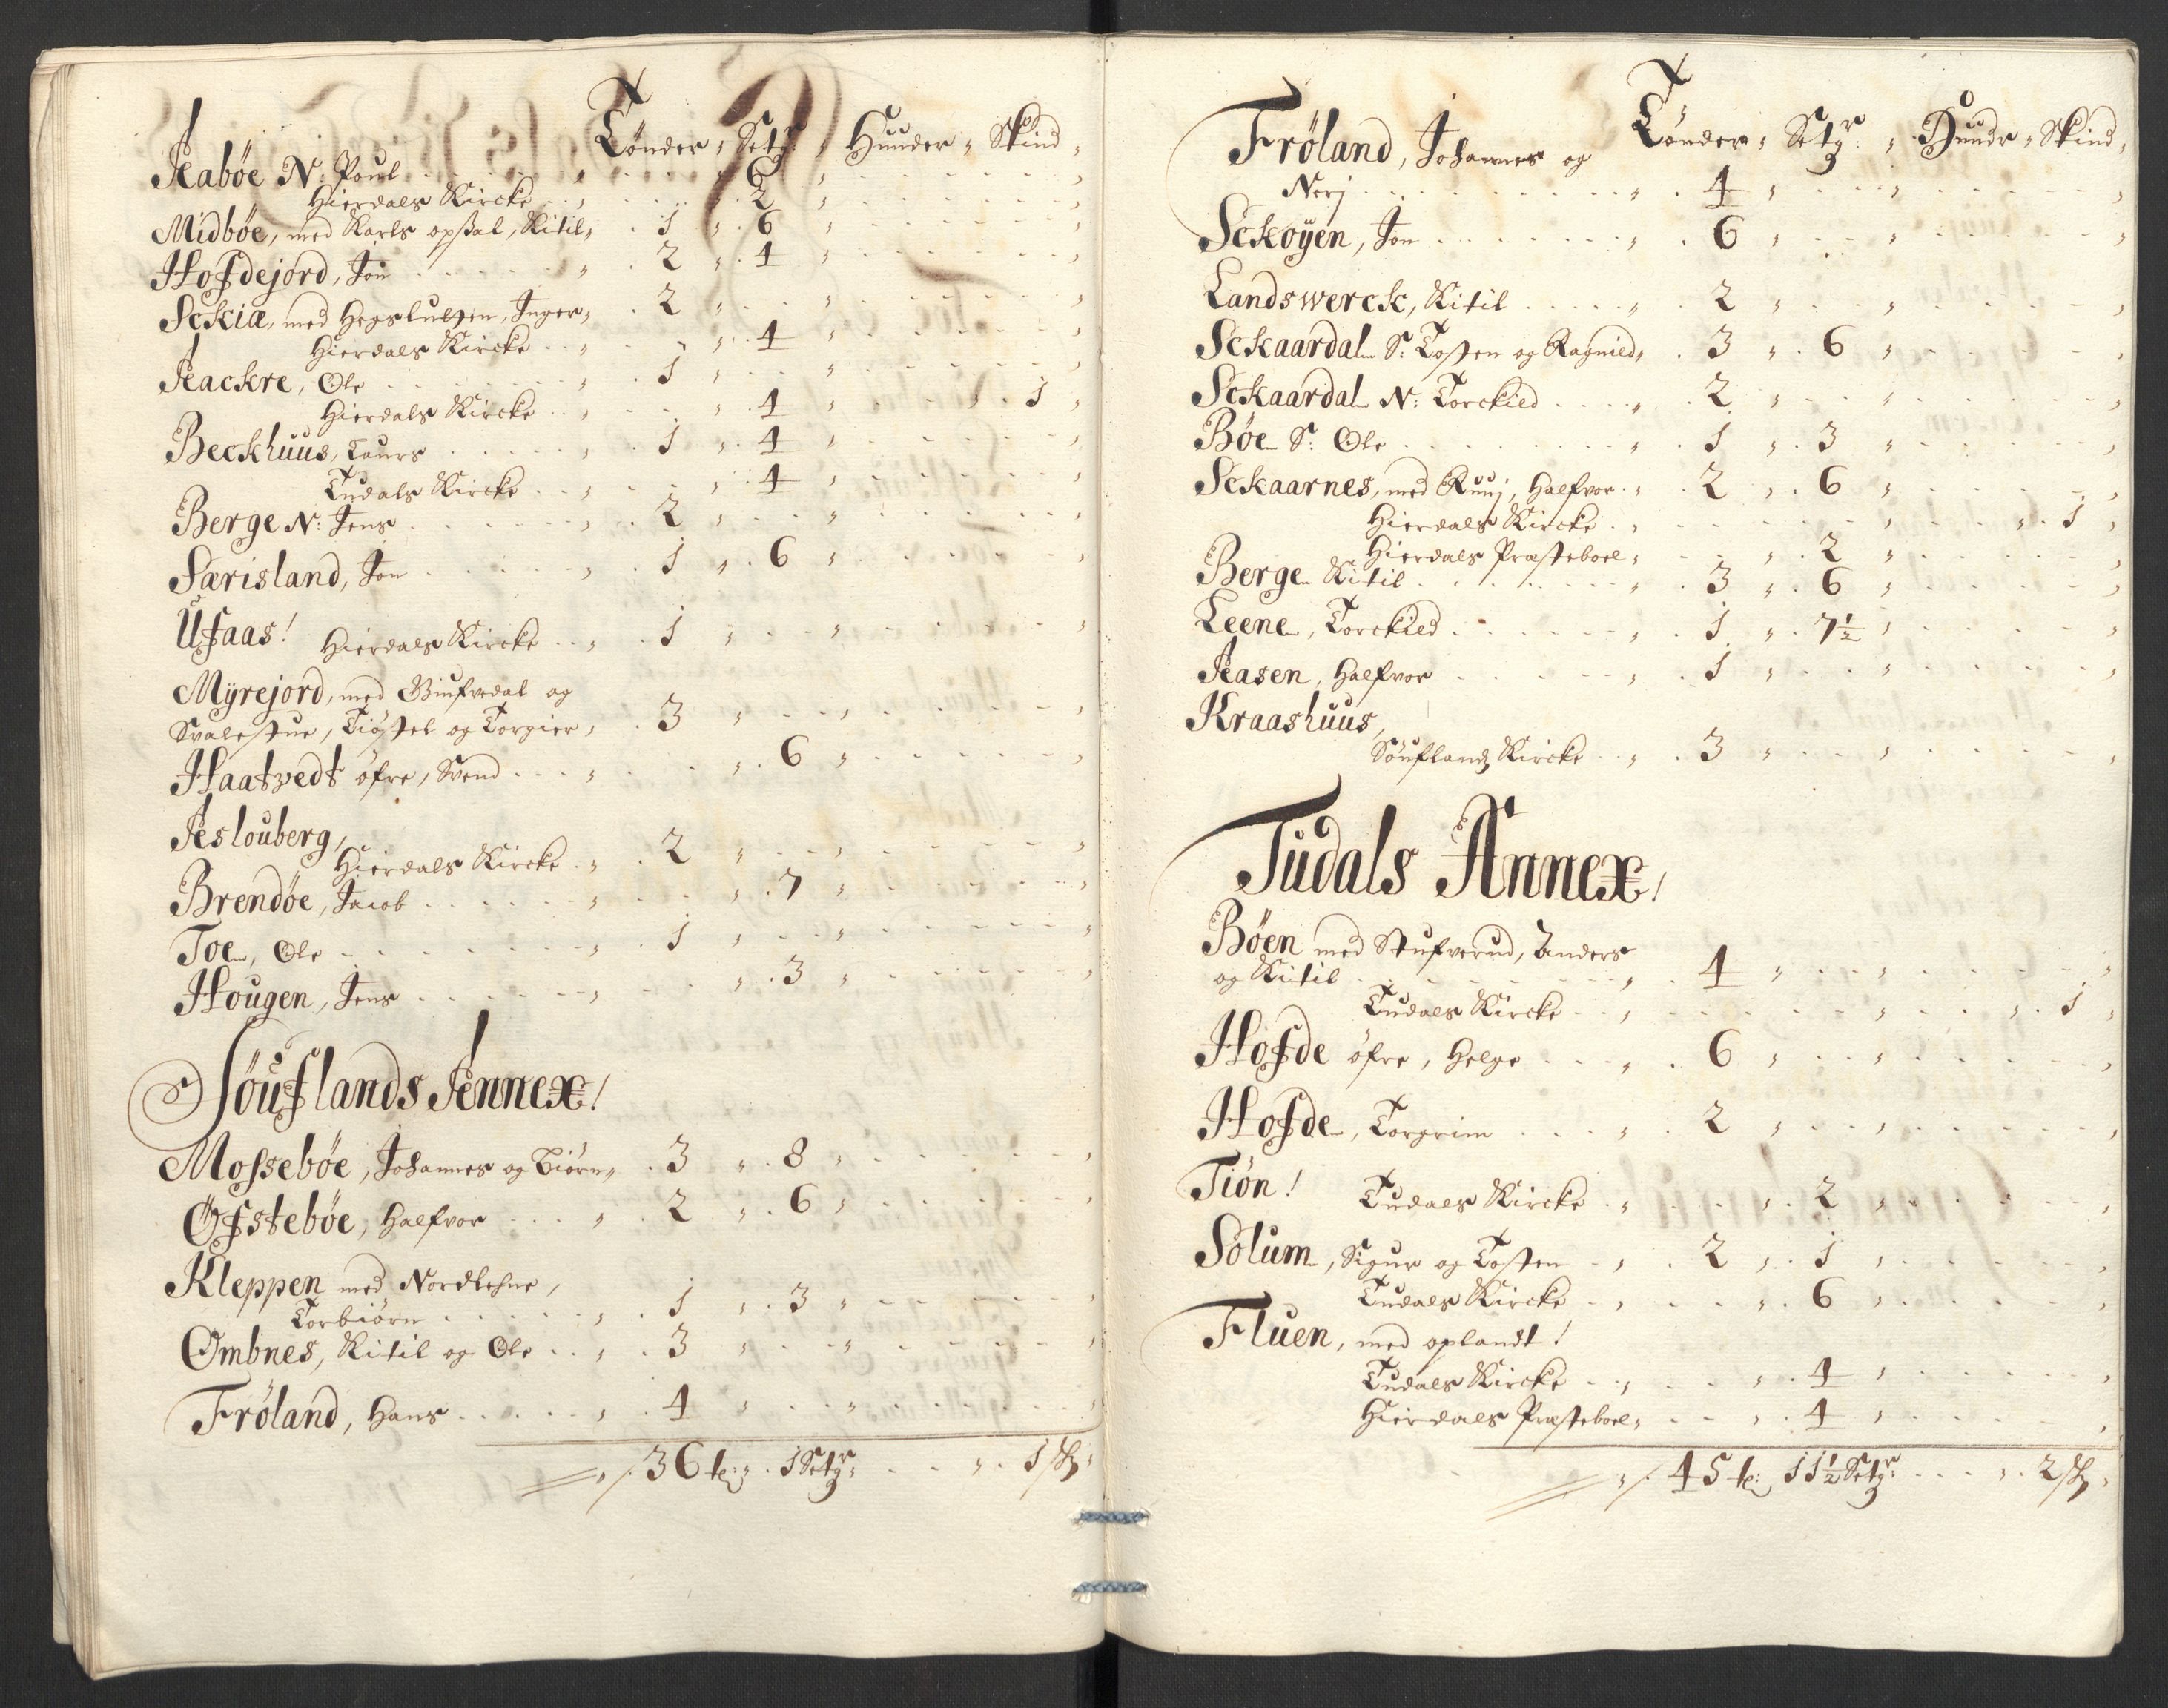 Tønder, Setg^r: Huuder, Skind,
Aabøe N: Poul . . . 6
Hierdals Kircke . . . 2
Midbøe, med Karls opstal, Kitil, . 1 . 6
Hofdejord, Jon . . . 2 . 4
Sckia, med Hegslulsen, Inger, . 2
Hierdals Kircke . . . 4
Aackre, Ole . . . 1
Hierdals Kircke . . . 4 . . . 1
Beckhuus, Laurs . . . 1 . 4
Tudals Kircke . . . 4
Berge N: Jens . . . 2
Særisland, Jon . . . 1 . 6
Ufaas! Hierdals Kircke . . 1
Myrejord, med Giufvedal og
Svalestue, Tiøstel og Torgier, . 3
Haatvedt øfre, Svend . . . 6
Aslouberg,
Hierdals Kircke . . 2
Brendøe, Jacob . . . 7
Toe, Ole . . . 1
Hougen, Jens . . . 3
Søuflands Annex!
Mossebøe, Johannes og Biørn, . 3 . 8
Øfstebøe, Halfvor . . . 2 . 6
Kleppen med Nordlehne,
Torbiørn . . . 1 . 3
Ombnes, Kitil og Ole . . 3
Frøland, Hans . . . 4
36 t: 1 Setg^r: . . 1 sk
Tønder, Setg^r: Huudr, Skind,
Frøland, Johannes og
Nerj . . . 4
Sckoyen, Jon . . . 6
Landswerck, Kitil . . . 2
Sckaardal S: Tosten og Ragnild, . 3 . 6
Sckaardal N: Torckild . . . 2
Bøe S: Ole . . . 1 . 3
Sckaarnes, med Ruuj, Halfvor . 2 . 6
Hierdals Kircke . . . 1
Hierdals Præsteboel, . . . 2
Berge Kitil . . . 3 . 6
Leene, Torckild . . . 1 . 7½
Aasen, Halfvor . . . 1
Kraashuus,
Søuflandz Kircke . . 3
Tudals Annex!
Bøen med Stufverud, Anders
og Kitil . . . 4
Tudals Kircke . . . 1
Hofde øfre, Helge . . . 6
Hofde, Torgrim . . . 2
Tiøn! Tudals Kircke . . . 2
Solum, Sigur og Tosten . . 2 . 1
Tudals Kircke . . . 6
Fluen, med oplandt!
Tudals Kircke . . . 4
Hierdals Præsteboel, . . . 4
45 t: 11½ Setg^r: . . . 2 sk